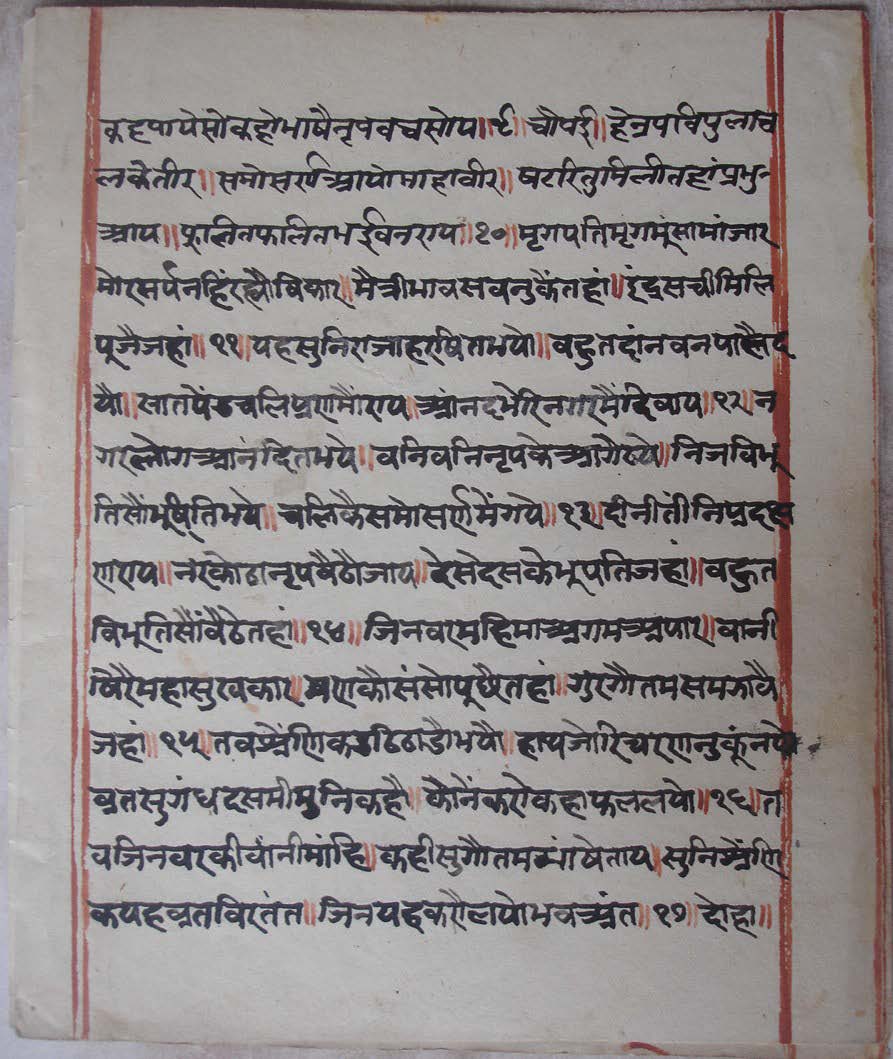 कहपायेसोकहोभाषैनृपवचसोय॥९॥चौपई॥हेन्रपविपुलाच
लकेतीर॥समोसर्णआयोमाहावीर॥षटरितुमिलीतहांप्रभु
आय॥फुलितफलितभईवनराय॥१०॥मृगपतिमृगमुंसामांजार
मोरसर्पनहिंरह्यौविकार॥मैत्रीभावसवनुकैंतहां॥इंद्रसचीमिलि
पूजैजहां॥११॥यहसुनिराजाहरषितभयो॥वहुतदांनवनपालैद
यौ॥सातपेंडचलिप्रणमैंराय॥आंनदभेरिनगरमैंदिवाय॥१२॥न
गरलोगआनंदितभये॥वनिवनिनृपकेआगैठये॥निजविभू
तिसौंभूषितिभये॥चलिकैसमोसर्णमेंगये॥१३॥दीनीतीनिप्रदक्ष
णाराय॥नरकोठानृपवैठौजाय॥देसेदसकेभूपतिजहां॥वहुत
विभूतिसौंवैठेतहां॥१४॥जिनवरमहिमाअगमअपार॥वानी
षिरैमहासुखकार॥षराकौसंसोपूछैतहां॥गुरगौतमसमझावै
जहां॥१५॥तवश्रैंणिकउठिठाडौभयौ॥हाथजोरिचरणनुकूंनयो
व्रतसुगंधदसमीमुनिकहौ॥कौनैंकरोकहाफललयो॥१६॥त
वजिनवरकीवांनीमांहि॥कहीसुगौतमभाषेताय॥सुनिश्रैंणि
कयहव्रतविरतंत॥जिनयहकरौलयोभवअंत॥१७॥दोहा॥